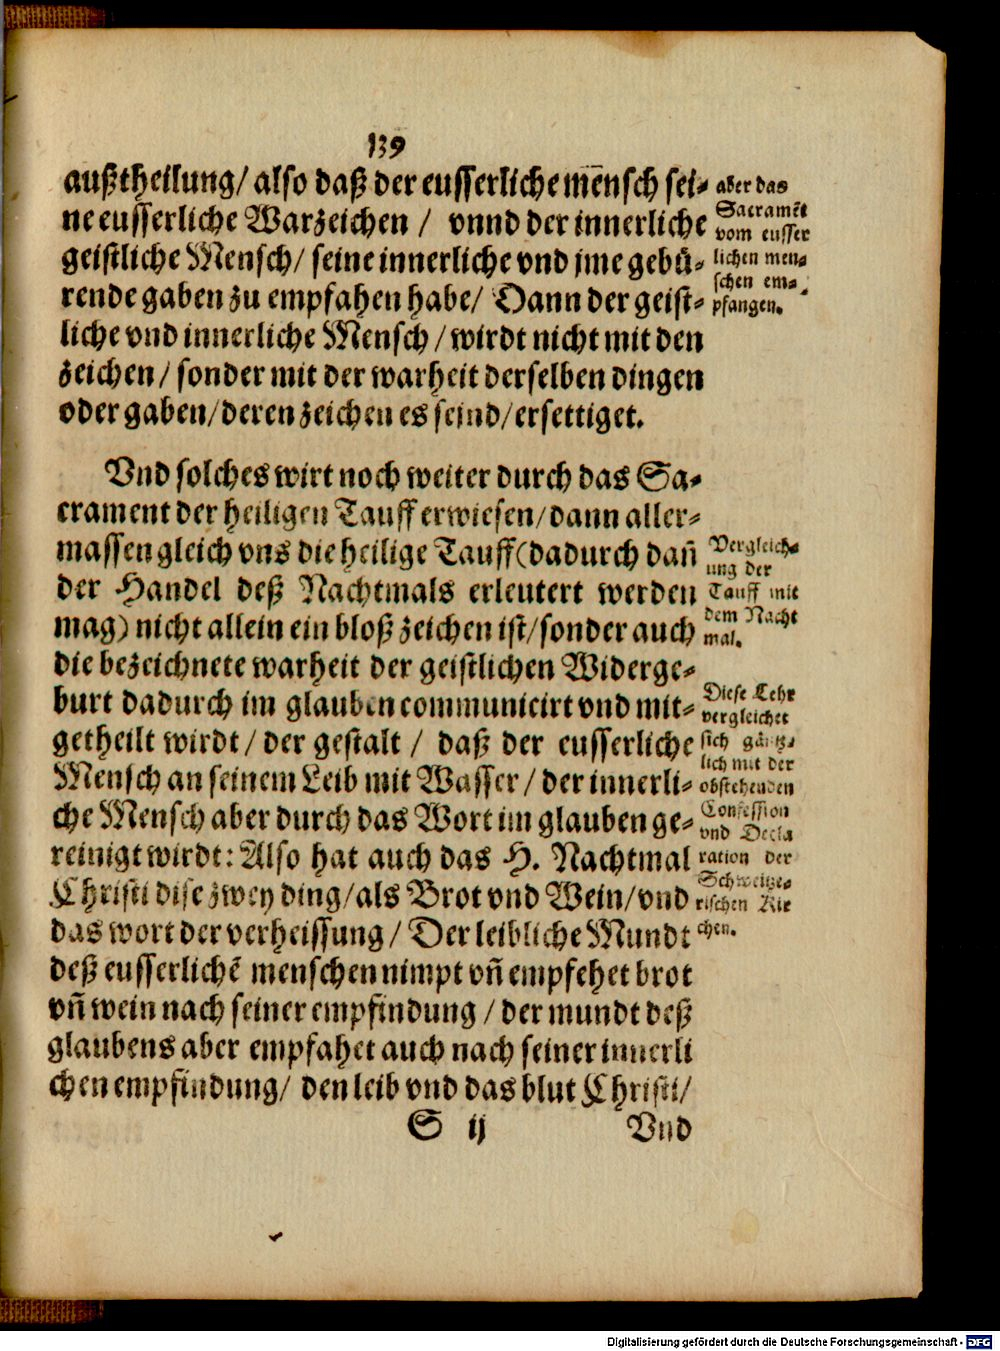 139
außtheilung/ also daß der eusserliche men̄sch sei-
ne eusserliche Warzeichen / vnnd der innerliche
geistliche Mensch/ seine innerliche vnd jme gebü-
rende gaben zu empfahen habe/ Dann der geist-
liche vnd innerliche Mensch / wirdt nicht mit den
zeichen / sonder mit der warheit derselben dingen
oder gaben/ deren zeichen es seind/ ersettiget.
aber das
Sacramēt
vom eusser
lichen men-
schen em-
pfangen.
Vnd solches wirt noch weiter durch das Sa-
crament der heiligen Tauff erwiesen/ dann aller-
massen gleich vns die heilige Tauff (dadurch dañ
der Handel deß Nachtmals erleutert werden
mag) nicht allein ein bloß zeichen ist/ sonder auch
die bezeichnete warheit der geistlichen Widerge-
burt dadurch im glauben communicirt vnd mit-
getheilt wirdt / der gestalt / daß der eusserliche
Mensch an seinem Leib mit Wasser / der innerli-
che Mensch aber durch das Wort im glauben ge-
reinigt wirdt: Also hat auch das H. Nachtmal
Christi dise zwey ding/ als Brot vnd Wein/ vnd
das wort der verheissung / Der leibliche Mundt
deß eusserlichē menschen nimpt vñ empfehet brot
vñ wein nach seiner empfindung / der mundt deß
glaubens aber empfahet auch nach seiner innerli
chen empfindung/ den leib vnd das blut Christi/
Vergleich-
ung der
Tauff mit
dem Nacht
mal.
Diese Lehr
vergleichet
sich gäntz-
lich mit der
obstehenden
Confession
vnd Decla
ration der
Schweitze-
rischen Kir
chen.
S ij Vnd
Digitalisierung gefördert durch die Deutsche Forschungsgemeinschaft - DFG